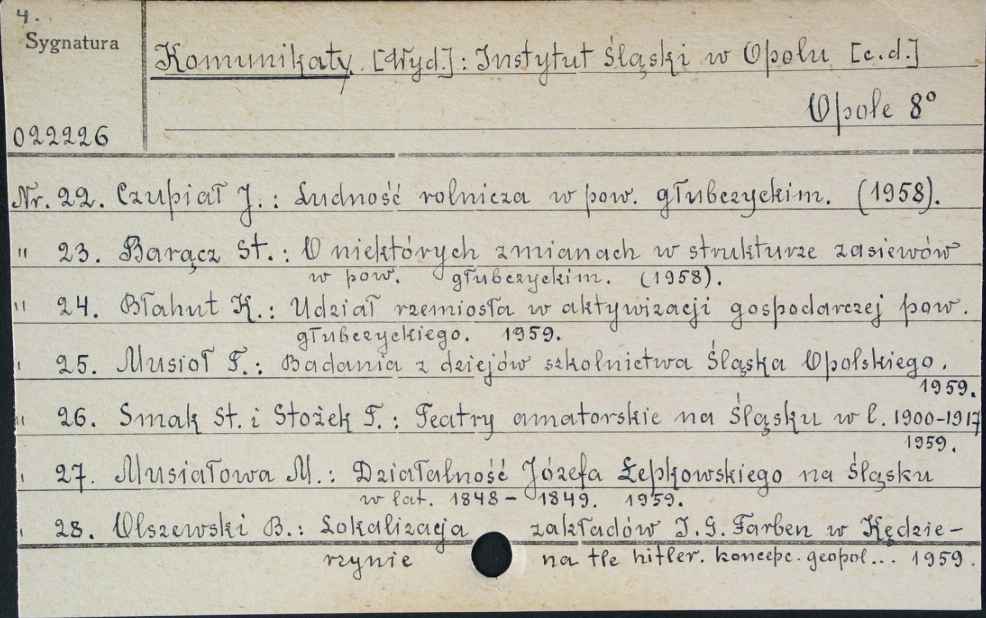 4.
Sygnatura
Komunikaty. [Wyd.]: Instytut Śląski w Opolu [c.d.]
Opole 8°
022226
Nr. 22. Czupiał J.: Ludność rolnicza w pow. głubczyckim. (1958).
" 23. Barącz St.: O niektórych zmianach w strukturze zasiewów
w pow. głubczyckim. (1958).
" 24. Błahut K.: Udział rzemiosła w aktywizacji gospodarczej pow.
głubczyckiego. 1959.
" 25. Musioł F.: Badania z dziejów szkolnictwa Śląska Opolskiego.
1959.
" 26. Smak St. i Stożek F.: Teatry amatorskie na Śląsku w l. 1900-1917
1959.
" 27. Musiałowa M.: Działalność Józefa Łepkowskiego na Śląsku
w lat. 1848 - 1849. 1959.
" 28. Olszewski B.: Lokalizacja zakładów I.G. Farben w Kędzie-
rzynie na tle hitler. koncepc. geopol... 1959.